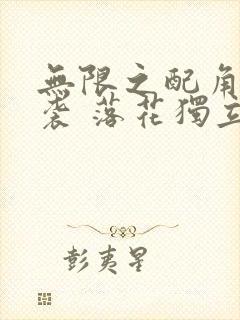 無限之配角
袭 落花獨立
彭夷星